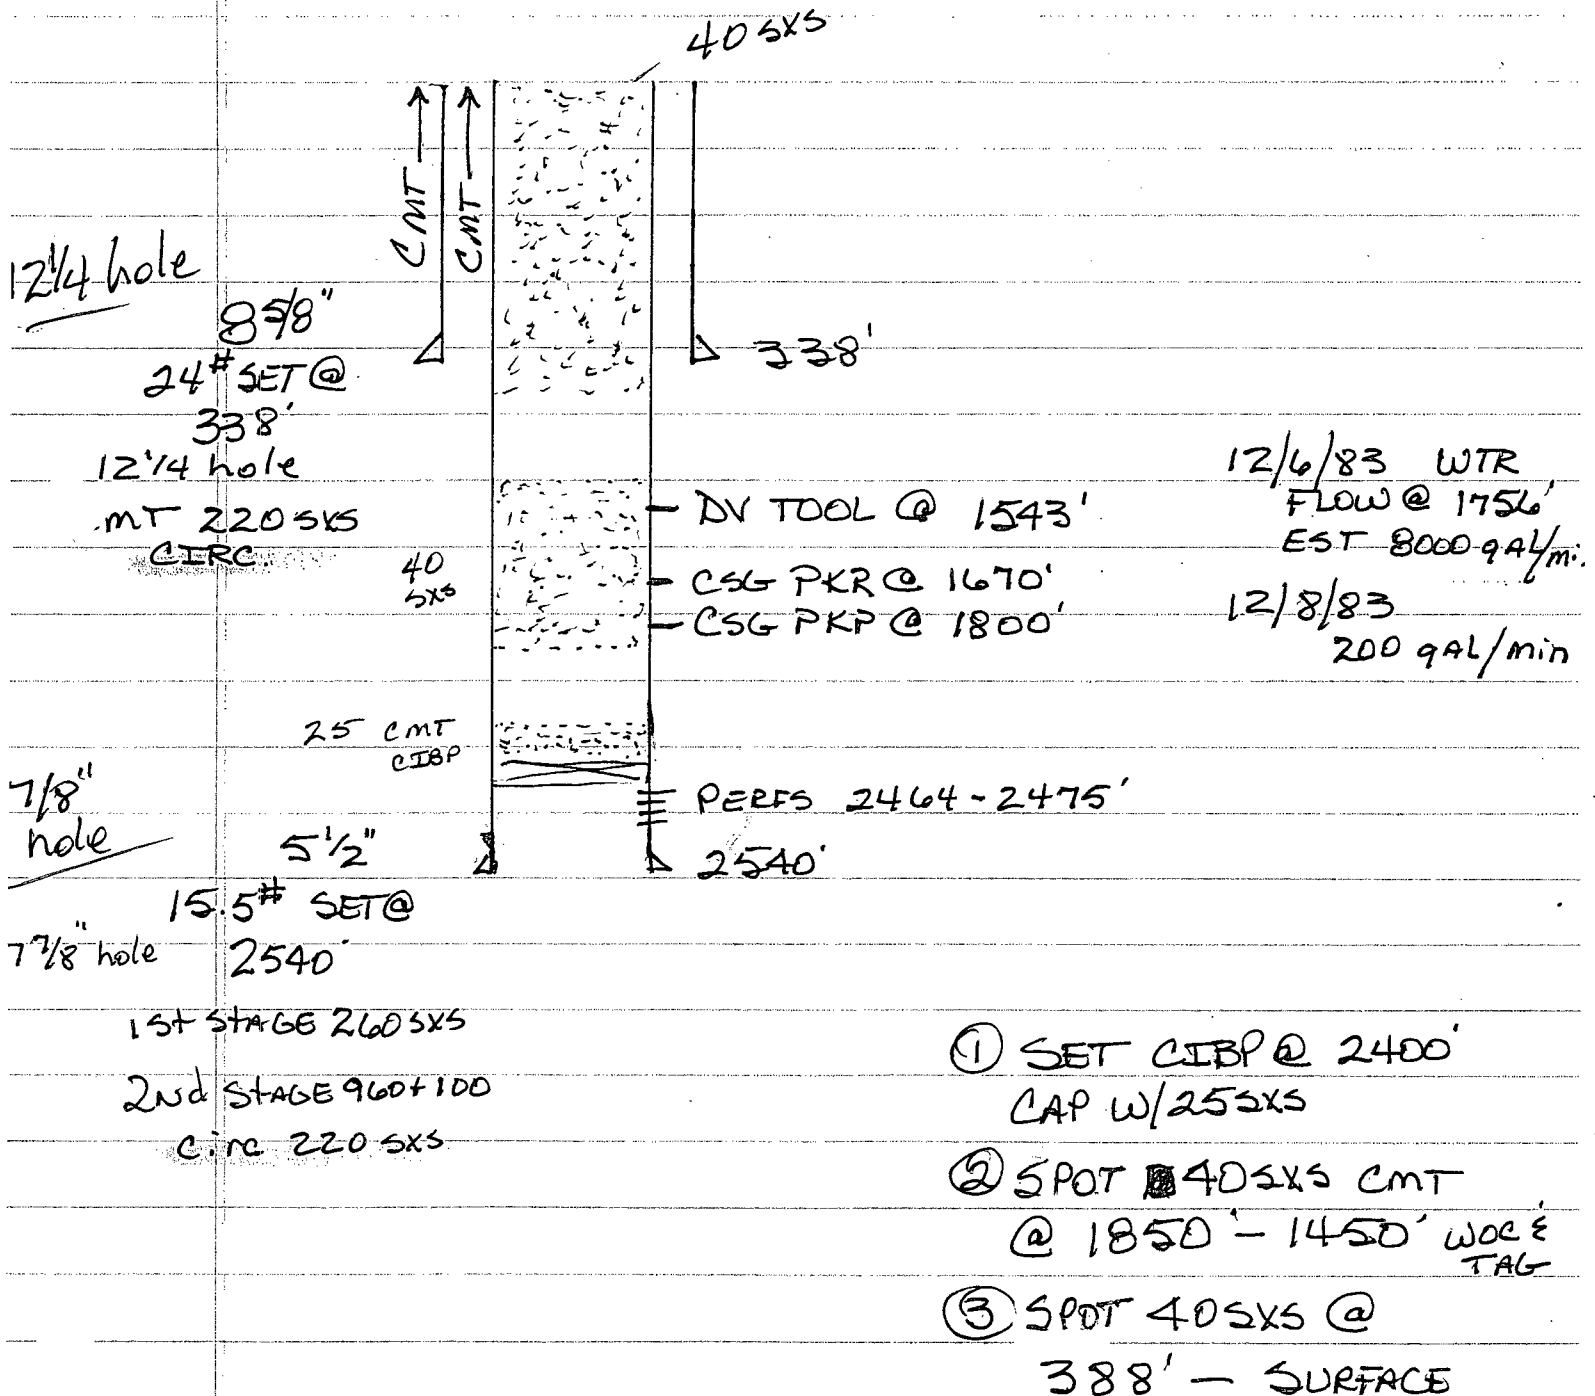 40 SXS
CMT →
CMT →
12 1/4 hole
8 5/8"
24# SET @
338'
12 1/4 hole
MT 220 SXS
CIRC.
338'
DV TOOL @ 1543'
CSG PKR @ 1670'
CSG PKP @ 1800'
40
SXS
12/6/83 WTR
FLOW @ 1756'
EST 8000 gAL/mi.
12/8/83
200 gAL/min
25 CMT
CIBP
PERFS 2464-2475'
2540'
7/8"
hole
5 1/2"
15.5# SET @
7 7/8" hole 2540'
1st STAGE 260 SXS
2Nd STAGE 960+100
Circ 220 SXS
① SET CIBP @ 2400'
CAP W/25SXS
② SPOT 40SXS CMT
@ 1850' - 1450' WOC &
TAG
③ SPOT 40SXS @
388' - SURFACE